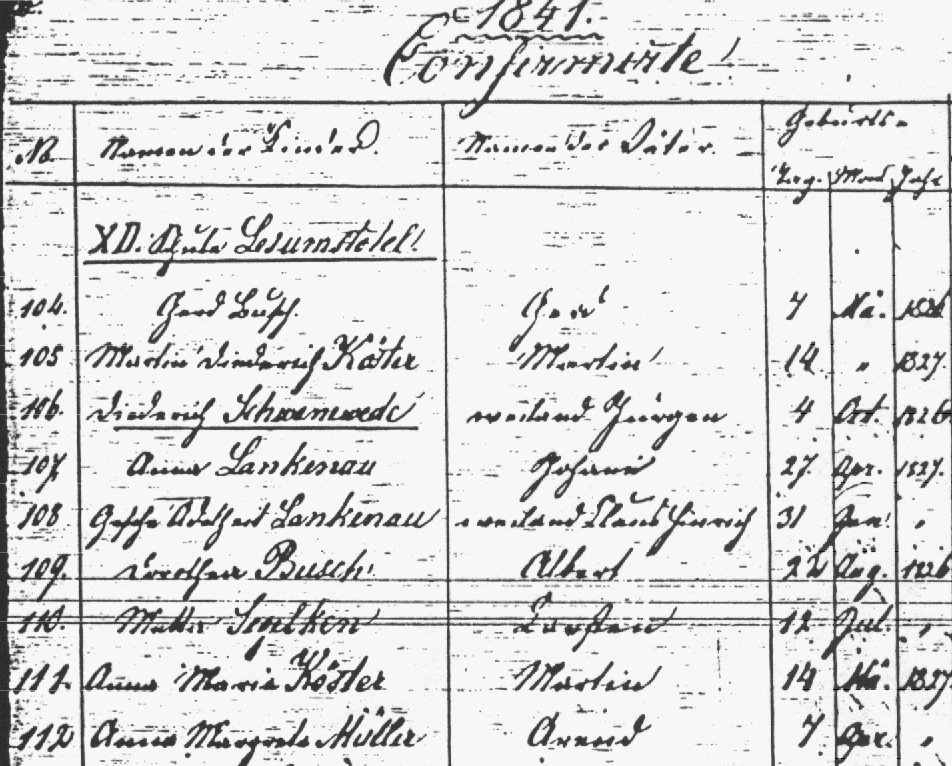 1841.
Confirmirte!
No. Namen der Kinder. Namen der Väter. Geburts-
Tag. Mon. Jahr
XI). Schule Lesumstotel!
104. Gerd Busch. Gerd 7 Mä. 1826
105 Martin Diederich Köster Martin 14 " 1827.
106. Diederich Schwenewede weiland Jürgen 4 Oct. 1826
107. Anna Lankenau Johann 27 Apr. 1827.
108 Gesche Adelheit Lankenau weiland Claus Hinrich 31 Jan. "
109. Dorothea Busch Albert 22 Aug. 1826
110. Metta Seylken Carsten 12 Jul. "
111. Anna Maria Köster Martin 14 Mä. 1827
112 Anna Margreta Müller Arend 7 Apr. "